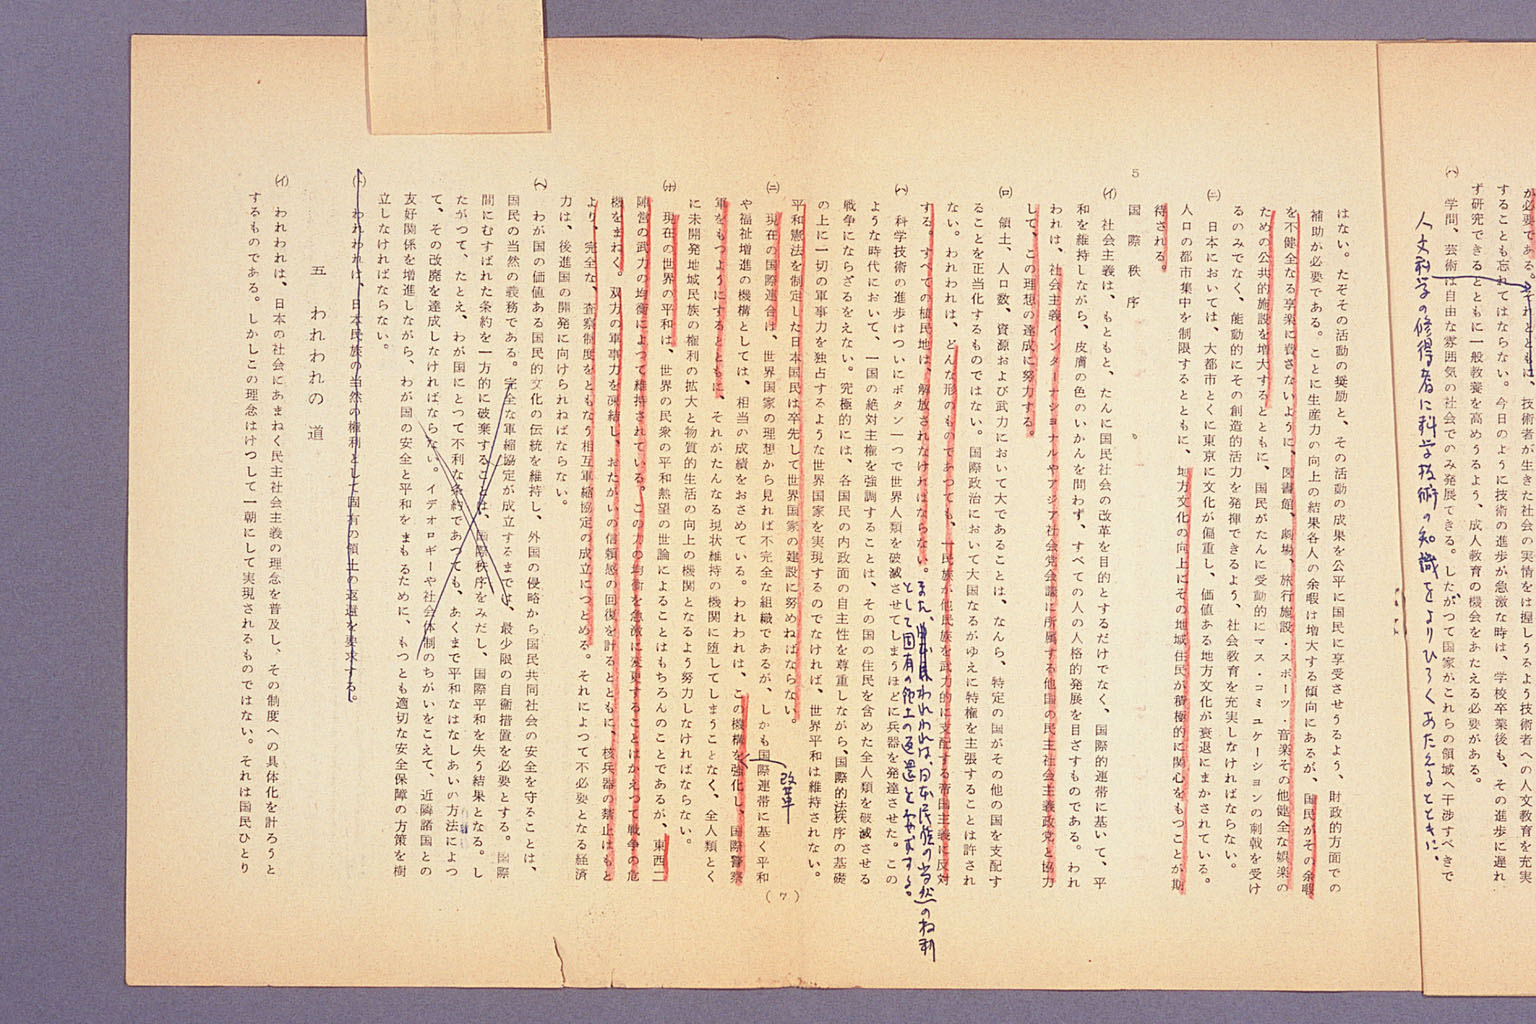 が必要である。それとともに、技術者が生きた社会の実情をはあ握しうるよう技術者への人文教育を充実
することも忘れてはならない。今日のように技術の進歩が急激な時は、学校卒業後も、その進歩に遅れ
ず研究できるとともに一般教養を高めうるよう、成人教育の機会をあたえる必要がある。
(ハ) 学問、芸術は自由な雰囲気の社会でのみ発展できる。したがつて国家がこれらの領域へ干渉すべきで
人文科学の修得者に科学技術の知識をよりひろくあたえるとともに、
はない。たぞその活動の奨励と、その活動の成果を公平に国民に享受させうるよう、財政的方面での
補助が必要である。ことに生産力の向上の結果各人の余暇は増大する傾向にあるが、国民がその余暇
を不健全なる享楽に費さないように、図書館、劇場、旅行施設・スポーツ・音楽その他健全な娯楽の
ための公共的施設を増大するとともに、国民がたんに受動的にマス・コミユケーションの刺戟を受け
るのみでなく、能動的にその創造的活力を発揮できるよう、社会教育を充実しなければならない。
(ニ) 日本においては、大都市とくに東京に文化が偏重し、価値ある地方文化が衰退にまかされている。
人口の都市集中を制限するとともに、地方文化の向上にその地域住民が積極的に関心をもつことが期
待される。
5 国際秩序。
(イ) 社会主義は、もともと、たんに国民社会の改革を目的とするだけでなく、国際的連帯に基いて、平
和を維持しながら、皮膚の色のいかんを問わず、すべての人の人格的発展を目ざすものである。われ
われは、社会主義インターナショナルやアジア社会党会議に所属する他国の民主社会主義政党と協力
して、この理想の達成に努力する。
(ロ) 領土、人口数、資源および武力において大であることは、なんら、特定の国がその他の国を支配す
ることを正当化するものではない。国際政治において大国なるがゆえに特権を主張することは許され
ない。われわれは、どんな形のものであつても、一民族が他民族を武力的に支配する帝国主義に反対
する。すべての植民地は、解放されなければならない。
また、われわれは、日本民族の当然の権利
として固有の領土の返還を要求する。
(ハ) 科学技術の進歩はついにボタン一つで世界人類を破滅させてしまうほどに兵器を発達させた。この
ような時代において、一国の絶対主権を強調することは、その国の住民を含めた全人類を破滅させる
戦争にならざるをえない。究極的には、各国民の内政面の自主性を尊重しながら、国際的法秩序の基礎
の上に一切の軍事力を独占するような世界国家を実現するのでなければ、世界平和は維持されない。
平和憲法を制定した日本国民は卒先して世界国家の建設に努めねばならない。
(ニ) 現在の国際連合は、世界国家の理想から見れば不完全な組織であるが、しかも国際連帯に基く平和
や福祉増進の機構としては、相当の成績をおさめている。われわれは、この機構を強化し、国際警察
改革
軍をもつようにするとともに、それがたんなる現状維持の機関に堕してしまうことなく、全人類とく
に未開発地域民族の権利の拡大と物質的生活の向上の機関となるよう努力しなければならない。
(ホ) 現在の世界の平和は、世界の民衆の平和熱望の世論によることはもちろんのことであるが、東西二
陣営の武力の均衡によつて維持されている。この力の均衡を急激に変更することはかえつて戦争の危
機をまねく。双方の軍事力を凍結し、おたがいの信頼感の回復を計るとともに、核兵器の禁止はもと
より、完全な、査察制度をともなう相互軍縮協定の成立につとめる。それによつて不必要となる経済
力は、後進国の開発に向けられねばならない。
(ヘ) わが国の価値ある国民的文化の伝統を維持し、外国の侵略から国民共同社会の安全を守ることは、
国民の当然の義務である。完全な軍縮協定が成立するまでは、最少限の自衛措置を必要とする。国際
間にむすばれた条約を一方的に破棄することは、国際秩序をみだし、国際平和を失う結果となる。し
たがつて、たとえ、わが国にとつて不利な条約であつても、あくまで平和なはなしあいの方法によつ
て、その改廃を達成しなければならない。イデオロギーや社会体制のちがいをこえて、近隣諸国との
友好関係を増進しながら、わが国の安全と平和をまもるために、もつとも適切な安全保障の方策を樹
立しなければならない。
(ト) われわれは、日本民族の当然の権利として固有の領土の返還を要求する。
五 われわれの道
(イ) われわれは、日本の社会にあまねく民主社会主義の理念を普及し、その制度への具体化を計ろうと
するものである。しかしこの理念はけつして一朝にして実現されるものではない。それは国民ひとり
(7)